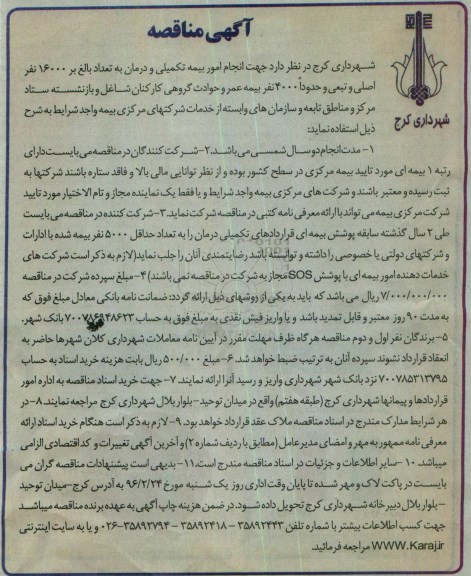 آگهی مناقصه
شهرداری کرج
شهرداری کرج در نظر دارد جهت انجام امور بیمه تکمیلی و درمان به تعداد بالغ بر ۱۶۰۰۰ نفر
اصلی و تبعی و حدوداً ۴۰۰۰ نفر بیمه عمر و حوادث گروهی کارکنان شاغل و بازنشسته ستاد
مرکز و مناطق تابعه و سازمان های وابسته از خدمات شرکتهای مرکزی بیمه واجد شرایط به شرح
ذیل استفاده نماید:
۱- مدت انجام دو سال شمسی می باشد. ۲- شرکت کنندگان در مناقصه می بایست دارای
رتبه ۱ بیمه ای مورد تایید بیمه مرکزی در سطح کشور بوده و از نظر توانایی مالی بالا و فاقد ستاره باشند شرکتها به
ثبت رسیده و معتبر باشند و شرکت های مرکزی بیمه واجد شرایط و یا فقط یک نماینده مجاز و تام الاختیار مورد تایید
شرکت مرکزی بیمه می تواند با ارائه معرفی نامه کتبی در مناقصه شرکت نماید. ۳- شرکت کننده در مناقصه می بایست
طی ۲ سال گذشته سابقه پوشش بیمه ای قراردادهای تکمیلی درمان را به تعداد حداقل ۵۰۰۰ نفر بیمه شده با ادارات
و شرکتهای دولتی یا خصوصی را داشته و توانسته باشد رضایتمندی آنان را جلب نماید (لازم به ذکر است شرکت های
خدمات دهنده امور بیمه ای با پوشش SOS مجاز به شرکت در مناقصه نمی باشند) ۴- مبلغ سپرده شرکت در مناقصه
۷/۰۰۰/۰۰۰/۰۰۰ ریال می باشد که باید به یکی از روشهای ذیل ارائه گردد: ضمانت نامه بانکی معادل مبلغ فوق که
به مدت ۹۰ روز معتبر و قابل تمدید باشد و یا واریز فیش نقدی به مبلغ فوق به حساب ۷۰۰۷۸۶۹۴۸۶۲۳ بانک شهر.
۵- برندگان نفر اول و دوم مناقصه هرگاه ظرف مهلت مقرر در آیین نامه معاملات شهرداری کلان شهرها حاضر به
انعقاد قرارداد نشوند سپرده آنان به ترتیب ضبط خواهد شد. ۶- مبلغ ۵۰۰/۰۰۰ ریال بابت هزینه خرید اسناد به حساب
۷۰۰۷۸۵۳۱۳۷۹۵ نزد بانک شهر شهرداری واریز و رسید آنرا ارائه نمایند. ۷- جهت خرید اسناد مناقصه به اداره امور
قراردادها و پیمانها شهرداری کرج (طبقه هفتم) واقع در میدان توحید - بلوار بلال شهرداری کرج مراجعه نمایند. ۸- در
هر شرایط مدارک مندرج در اسناد مناقصه ملاک عقد قرارداد خواهد بود. ۹- لازم به ذکر است هنگام خرید اسناد ارائه
معرفی نامه ممهور به مهر و امضای مدیر عامل (مطابق با ردیف شماره ۲) و آخرین آگهی تغییرات و کد اقتصادی الزامی
میباشد. ۱۰- سایر اطلاعات و جزئیات در اسناد مناقصه مندرج است. ۱۱- بدیهی است پیشنهادات مناقصه گران می
بایست در پاکت لاک و مهر شده تا پایان وقت اداری روز یک شنبه مورخ ۹۶/۲/۲۴ به آدرس کرج - میدان توحید
- بلوار بلال دبیرخانه شهرداری کرج تحویل داده شود. در ضمن هزینه چاپ آگهی به عهده برنده مناقصه میباشد
جهت کسب اطلاعات بیشتر با شماره تلفن ۳۵۸۹۲۴۴۳ - ۳۵۸۹۲۴۱۸ - ۳۵۸۹۲۷۹۴-۰۲۶ و یا به سایت اینترنتی
WWW.Karaj.ir مراجعه فرمائید.